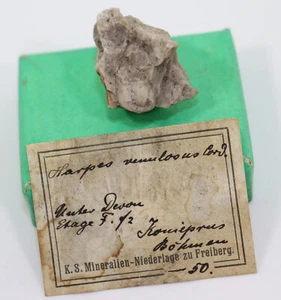 Harpes venulosus Cord.
Unter Devon
Etage F. f2
Konieprus
Böhmen
K. S. Mineralien-Niederlage zu Freiberg.
50.